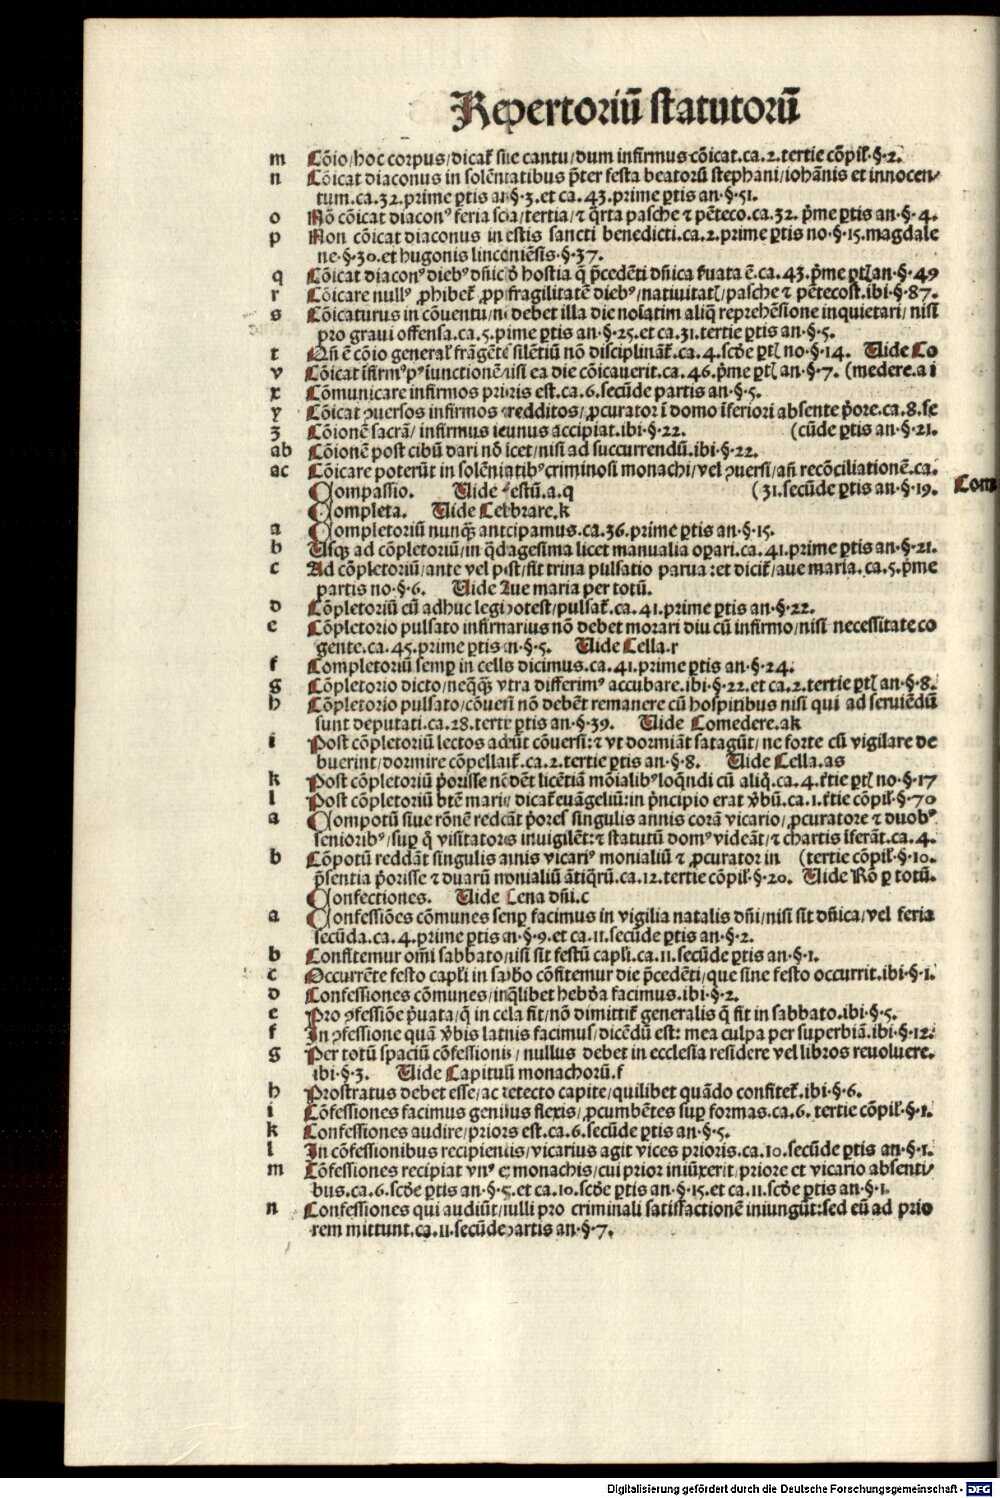 Repertoriū statutorū
m Cōio/hoc corpus/dicat̄ siue cantu/dum infirmus cōicat.ca.2.tertie cōpil̄.§.2.
n Cōicat diaconus in solēnitatibus p̄ter festa beatorū stephani/iohānis et innocen/
tum.ca.32.prime ꝑtis an.§.3.et ca.43.prime ꝑtis an.§.51.
o Nō cōicat diaconꝰ feria scd̄a/tertia/⁊ q̄rta pasche ⁊ pēteco.ca.32. p̄me ꝑtis an.§.4.
p Non cōicat diaconus in festis sancti benedicti.ca.2.prime ꝑtis no.§.15.magdale
ne.§.30.et hugonis linconiēsis.§.37.
q Cōicat diaconꝰ diebꝰ dn̄icis hostia q̄ p̄cedēti dn̄ica ẜuata ē.ca.43.p̄me ꝑtꝭ an.§.49
r Cōicare nullꝰ ꝓhibet̄ ꝓpꝑ fragilitatē diebꝰ/natiuitatꝭ/pasche ⁊ pētecost.ibi.§.87.
s Cōicaturus in cōuentu/nō debet illa die nolatim aliq̄ reprehēsione inquietari/nisi
pro graui offensa.ca.5.prime ꝑtis an.§.25.et ca.31.tertie ꝑtis an.§.5.
t Qn̄ ē cōio general̄ frāgēte silētiū nō disciplinat̄.ca.4.scd̄e ꝑtꝭ no.§.14. Uide Co
v Cōicat īfirmꝰ pꝰ īunctionē/nisi ea die cōicauerit.ca.46.p̄me ꝑtꝭ an.§.7. (medere.a i
x Cōmunicare infirmos prioris est.ca.6.secūde partis an.§.5.
y Cōicat ꝯuersos infirmos ⁊ redditos/ꝓcurator ī domo īferiori absente p̄ore.ca.8.se
z Cōionē sacrā/infirmus ieiunus accipiat.ibi.§.22. (cūde ꝑtis an.§.21.
ab Cōionē post cibū dari nō licet/nisi ad succurrendū.ibi.§.22.
ac Cōicare poterūt in solēnitatibꝰ criminosi monachi/vel ꝯuersi/an̄ recōciliationē.ca.
Compassio. Uide Festū.a.q (31.secūde ꝑtis an.§.19. Com
Completa. Uide Celebrare.k
a Completoriū nunqꝫ anticipamus.ca.36.prime ꝑtis an.§.15.
b Usqꝫ ad cōpletoriū/in q̄dragesima licet manualia oꝑari.ca.41.prime ꝑtis an.§.21.
c Ad cōpletoriū/ante vel post/fit trina pulsatio parua:et dicit̄/aue maria.ca.5.p̄me
partis no.§.6. Uide Aue maria per totū.
d Cōpletoriū cū adhuc legi potest/pulsat̄.ca.41.prime ꝑtis an.§.22.
e Cōpletorio pulsato infirmarius nō debet morari diu cū infirmo/nisi necessitate co
gente.ca.45.prime ꝑtis an.§.5. Uide Cella.r
f Completoriū semꝑ in cellis dicimus.ca.41.prime ꝑtis an.§.24.
g Cōpletorio dicto/neqꝫqꝫ vltra differimꝰ accubare.ibi.§.22.et ca.2.tertie ꝑtꝭ an.§.8.
h Cōpletorio pulsato/cōuersi nō debēt remanere cū hospitibus nisi qui ad seruiēdū
sunt deputati.ca.28.tertie ꝑtis an.§.39. Uide Comedere.ak
i Post cōpletoriū lectos adeūt cōuersi:⁊ vt dormiāt satagūt/ne forte cū vigilare de
buerint/dormire cōpellant̄.ca.2.tertie ꝑtis an.§.8. Uide Cella.as
k Post cōpletoriū p̄orisse nō dent licētiā mōialibꝰ loqn̄di cū aliq̄.ca.4.ẜtie ꝑtꝭ no.§.17
l Post cōpletoriū btē marie/dicat̄ euāgeliū:in p̄ncipio erat v̄bū.ca.1.ẜtie cōpil̄.§.70
a Compotū siue rōnē reddāt p̄ores singulis annis corā vicario/ꝓcuratore ⁊ duobꝰ
senioribꝰ/suꝑ q̄ visitatores inuigilēt:⁊ statutū domꝰ videāt/⁊ chartis īserāt.ca.4.
b Cōpotū reddāt singulis annis vicariꝰ monialiū ⁊ ꝓcurator in (tertie cōpil̄.§.10.
p̄sentia p̄orisse ⁊ duarū monialiū ātiq̄rū.ca.12.tertie cōpil̄.§.20. Uide Rō ꝑ totū.
Confectiones. Uide Cena dn̄i.c
a Confessiōes cōmunes semꝑ facimus in vigilia natalis dn̄i/nisi sit dn̄ica/vel feria
secūda.ca.4.prime ꝑtis an.§.9.et ca.11.secūde ꝑtis an.§.2.
b Confitemur om̄i sabbato/nisi sit festū capl̄i.ca.11.secūde ꝑtis an.§.1.
c Occurrēte festo capl̄i in sabbo cōfitemur die p̄cedēti/que sine festo occurrit.ibi.§.1.
d Confessiones cōmunes/in q̄libet hebd̄a facimus.ibi.§.2.
e Pro ꝯfessiōe p̄uata/q̄ in cella fit/nō dimittit̄ generalis q̄ fit in sabbato.ibi.§.5.
f In ꝯfessione quā v̄bis latinis facimus/dicēdū est: mea culpa per superbiā.ibi.§.12.
g Per totū spaciū cōfessionis/nullus debet in ecclesia residere vel libros reuoluere.
ibi.§.3. Uide Capitulū monachorū.f
h Prostratus debet esse/ac retecto capite/quilibet quādo confitet̄.ibi.§.6.
i Cōfessiones facimus genibus flexis/ꝓcumbētes suꝑ formas.ca.6. tertie cōpil̄.§.1.
k Confessiones audire/prioris est.ca.6.secūde ꝑtis an.§.5.
l In cōfessionibus recipiendis/vicarius agit vices prioris.ca.10.secūde ꝑtis an.§.1.
m Cōfessiones recipiat vnꝰ ex monachis/cui prior iniūxerit/priore et vicario absenti/
bus.ca.6.scd̄e ꝑtis an.§.5.et ca.10.scd̄e ꝑtis an.§.15.et ca.11.scd̄e ꝑtis an.§.1.
n Confessiones qui audiūt/nulli pro criminali satisfactionē iniungūt:sed eū ad prio
rem mittunt.ca.11.secūde partis an.§.7.
Digitalisierung gefördert durch die Deutsche Forschungsgemeinschaft - DFG